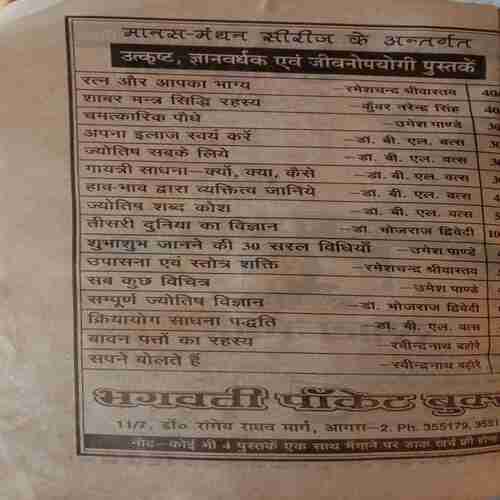 मानस-मंथन सीरीज के अन्तर्गत
उत्कृष्ट, ज्ञानवर्धक एवं जीवनोपयोगी पुस्तकें
रत्न और आपका भाग्य –रमेशचन्द्र श्रीवास्तव
शाबर मन्त्र सिद्धि रहस्य –कुँवर नरेन्द्र सिंह
चमत्कारिक पौधे –उमेश पाण्डे
अपना इलाज स्वयं करें –डॉ. बी. एल. वत्स
ज्योतिष सबके लिये –डॉ. बी. एल. वत्स
गायत्री साधना–क्यों, क्या, कैसे –डॉ. बी. एल. वत्स
हाव-भाव द्वारा व्यक्तित्व जानिये –डॉ. बी. एल. वत्स
ज्योतिष शब्द कोश –डॉ. बी. एल. वत्स
तीसरी दुनिया का विज्ञान –डॉ. भोजराज द्विवेदी
शुभाशुभ जानने की 30 सरल विधियाँ –उमेश पाण्डे
उपासना एवं स्तोत्र शक्ति –रमेशचन्द्र श्रीवास्तव
सब कुछ विचित्र –उमेश पाण्डे
सम्पूर्ण ज्योतिष विज्ञान –डॉ. भोजराज द्विवेदी
क्रियायोग साधना पद्धति –डॉ. बी. एल. वत्स
बावन पत्तों का रहस्य –रवीन्द्रनाथ बहोरे
सपने बोलते हैं –रवीन्द्रनाथ बहोरे
भगवती पॉकेट बुक्स
11/7, डॉ० रांगेय राघव मार्ग, आगरा–2. Ph. 355179,
नोट–कोई भी 4 पुस्तकें एक साथ मंगाने पर डाक खर्च फ्री